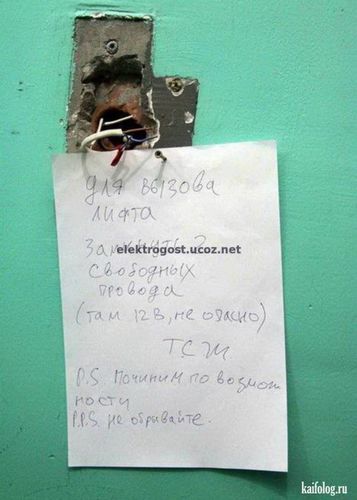 для вызова
лифта
замкнуть 2
elektrogost.ucoz.net
свободных
провода
(там 12В, не опасно)
ТСЖ
P.S. Починим по возмож
ности
P.P.S. не обрывайте.
kaifolog.ru